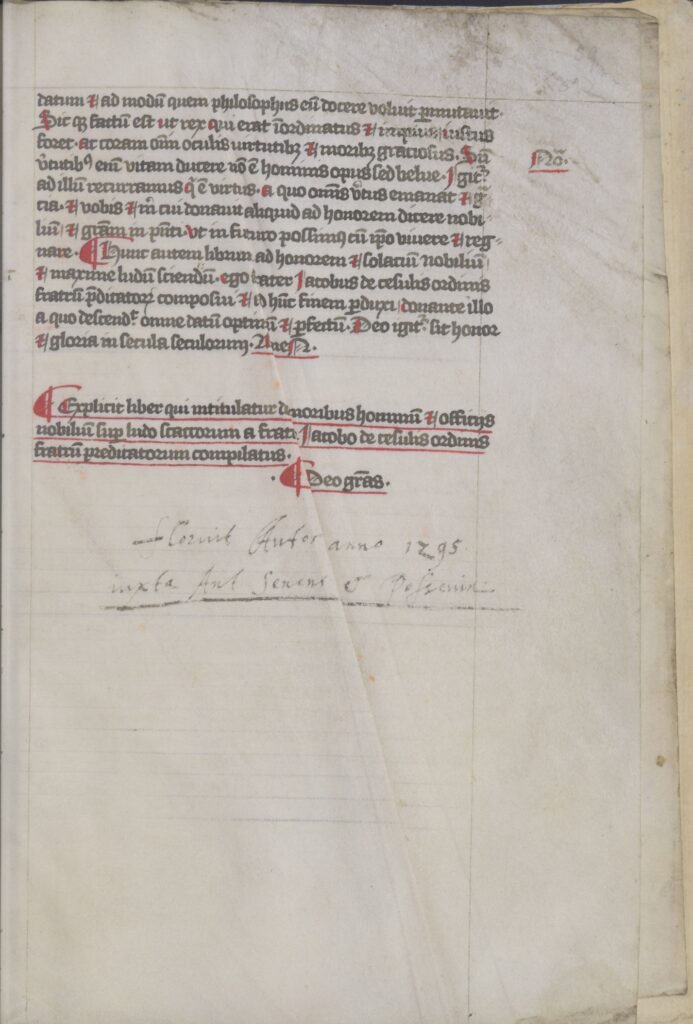 datum ⁊ ad modū quem philosophus eū docere voluit permutauit.
Sic qꝫ factū est ut rex qui erat īordinatus ⁊ impius iustus
foret. ac coram oīm oculis virtutibꝫ ⁊ moribꝫ graciosus. Sū
Nō.
v̓tutibꝰ enī vitam ducere nō ē hominis opus sed belue. Igit᷑
ad illū recurramus q̄ ē virtus. a quo om̄s v̓tus emanat ⁊ gr̄a
cia. ⁊ vobis ⁊ m̄ cui donauit aliquid ad honorem dicere nobi-
liū ⁊ gr̄am in pn̄ti. vt in futuro possimꝰ cū ip̄o viuere ⁊ reg-
nare. ¶ Hunc autem librum ad honorem ⁊ solaciū nobiliū
⁊ maxime ludū sciendū. ego frater Iacobus de cesulis ordinis
fratrū p̄dicatorꝝ composui ⁊ ad hūc finem ꝑduxi donante illo
a quo descend᷑ omne datū optimū ⁊ ꝑfectū. Deo igit᷑ sit honor
⁊ gloria in secula seculorum. AmeN.
¶ Explicit liber qui intitulatur de moribus hominū ⁊ officijs
nobiliū sup̄ ludo scaccorum a fratre Iacobo de cesulis ordinis
fratrū predicatorum compilatus.
¶ Deo gr̄as.
Floruit Autor anno 1295.
iuxta Ant Senens & Possevin.